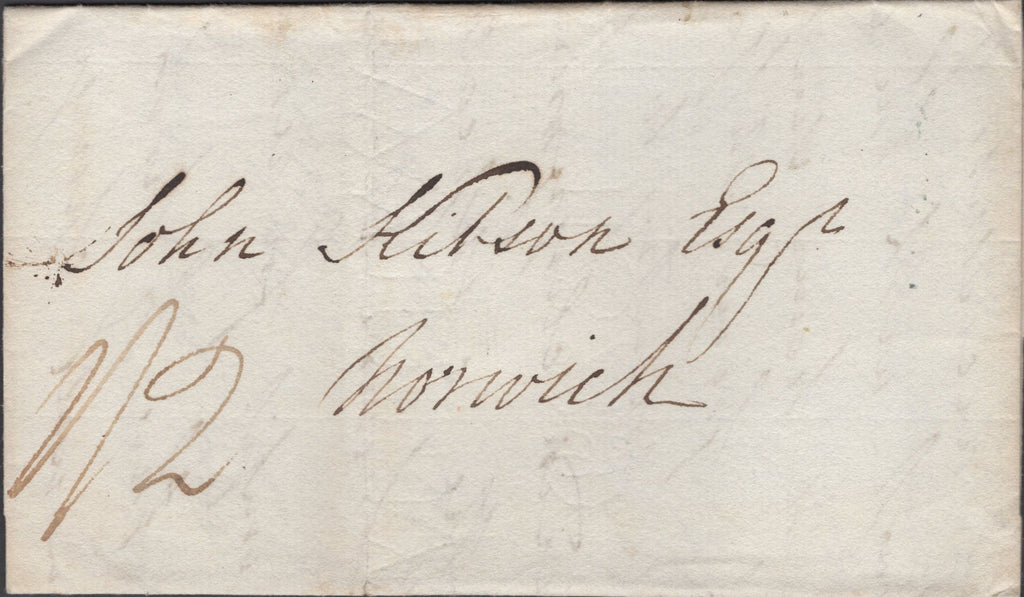 John Kitson Esqr
1/2 Norwich